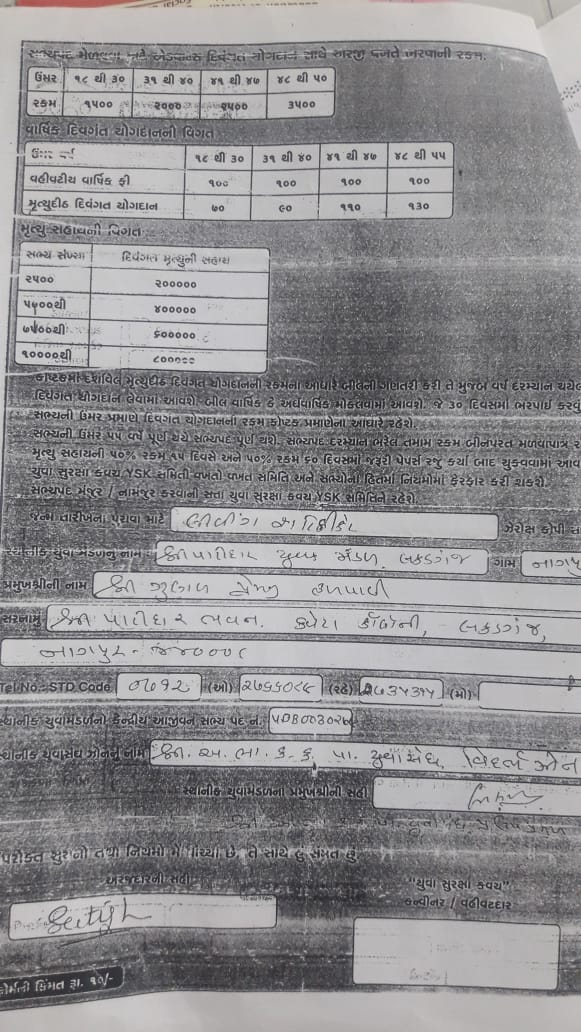 સભ્યપદ મેળવવા માટે એડવાન્સ દિવંગત યોગદાન સાથે અરજી વખતે ભરવાની રકમ.
ઉંમર ૧૮ થી ૩૦ ૩૧ થી ૪૦ ૪૧ થી ૪૭ ૪૮ થી ૫૦
રકમ ૧૫૦૦ ૨૦૦૦ ૨૫૦૦ ૩૫૦૦
વાર્ષિક દિવગંત યોગદાનની વિગત
ઉંમર વર્ષ ૧૮ થી ૩૦ ૩૧ થી ૪૦ ૪૧ થી ૪૭ ૪૮ થી ૫૫
વહીવટીય વાર્ષિક ફી ૧૦૦ ૧૦૦ ૧૦૦ ૧૦૦
મૃત્યુદીઠ દિવંગત યોગદાન ૭૦ ૯૦ ૧૧૦ ૧૩૦
મૃત્યુ સહાયની વિગત
સભ્ય સંખ્યા દિવંગત મૃત્યુની સહાય
૨૫૦૦ ૨૦૦૦૦૦
૫૦૦૦થી ૪૦૦૦૦૦
૭૫૦૦થી ૬૦૦૦૦૦
૧૦૦૦૦થી ૮૦૦૦૦૦
કોષ્ટકમાં દર્શાવેલ મૃત્યુદીઠ દિવંગત યોગદાનની રકમના આધારે બીલની ગણતરી કરી તે મુજબ વર્ષ દરમ્યાન થયેલ
દિવંગત યોગદાન લેવામાં આવશે. બીલ વાર્ષિક કે અર્ધવાર્ષિક મોકલવામાં આવશે. જે ૩૦ દિવસમાં ભરપાઈ કરવું
સભ્યની ઉંમર પ્રમાણે દિવંગત યોગદાનની રકમ કોષ્ટક પ્રમાણેના આધારે રહેશે.
સભ્યની ઉંમર ૫૫ વર્ષ પૂર્ણ થયે સભ્યપદ પૂર્ણ થશે. સભ્યપદ દરમ્યાન ભરેલ તમામ રકમ બીનપરત મળવાપાત્ર ર
મૃત્યુ સહાયની ૫૦% રકમ ૧૫ દિવસે અને ૫૦% રકમ ૬૦ દિવસમાં જરૂરી પેપર્સ રજુ કર્યા બાદ ચુકવવામાં આવ
યુવા સુરક્ષા કવચ YSK સમિતી વખતો વખત સમિતિ અને સભ્યોના હિતમાં નિયમોમાં ફેરફાર કરી શકશે.
સભ્યપદ મંજુર / નામંજુર કરવાની સત્તા યુવા સુરક્ષા કવચ YSK સમિતિને રહેશે.
જન્મ તારીખના પુરાવા માટે લીવીંગ સર્ટીફીકેટ ઝેરોક્ષ કોપી સ
સ્થાનીક યુવામંડળનું નામ : શ્રી પાટીદાર યુવક મંડળ, લકડગંજ ગામ નાગપુ
પ્રમુખશ્રીની નામ શ્રી
સરનામુ શ્રી પાટીદાર ભવન. ક્વેટા કોલોની, લકડગંજ,
નાગપુર - ૪૪૦૦૦૮
Tel.No.: STD Code 0712 (ઓ) (રહે) (મો)
સ્થાનીક યુવામંડળનો કેન્દ્રિય આજીવન સભ્ય પદ નં.
સ્થાનીક યુવાસંઘ ઝોનનું નામ શ્રી. અ. ભા. ક. ક. પા. યુવાસંઘ, વિદર્ભ ઝોન
સ્થાનીક યુવામંડળના પ્રમુખશ્રીની સહી
પરોક્ત સુચનો તથા નિયમો મેં વાંચ્યા છે. તે સાથે હું સંમત છું
અરજદારની સહી
"યુવા સુરક્ષા કવચ"
કન્વીનર / વહીવટદાર
ફોર્મની કિંમત રૂા. ૧૦/-